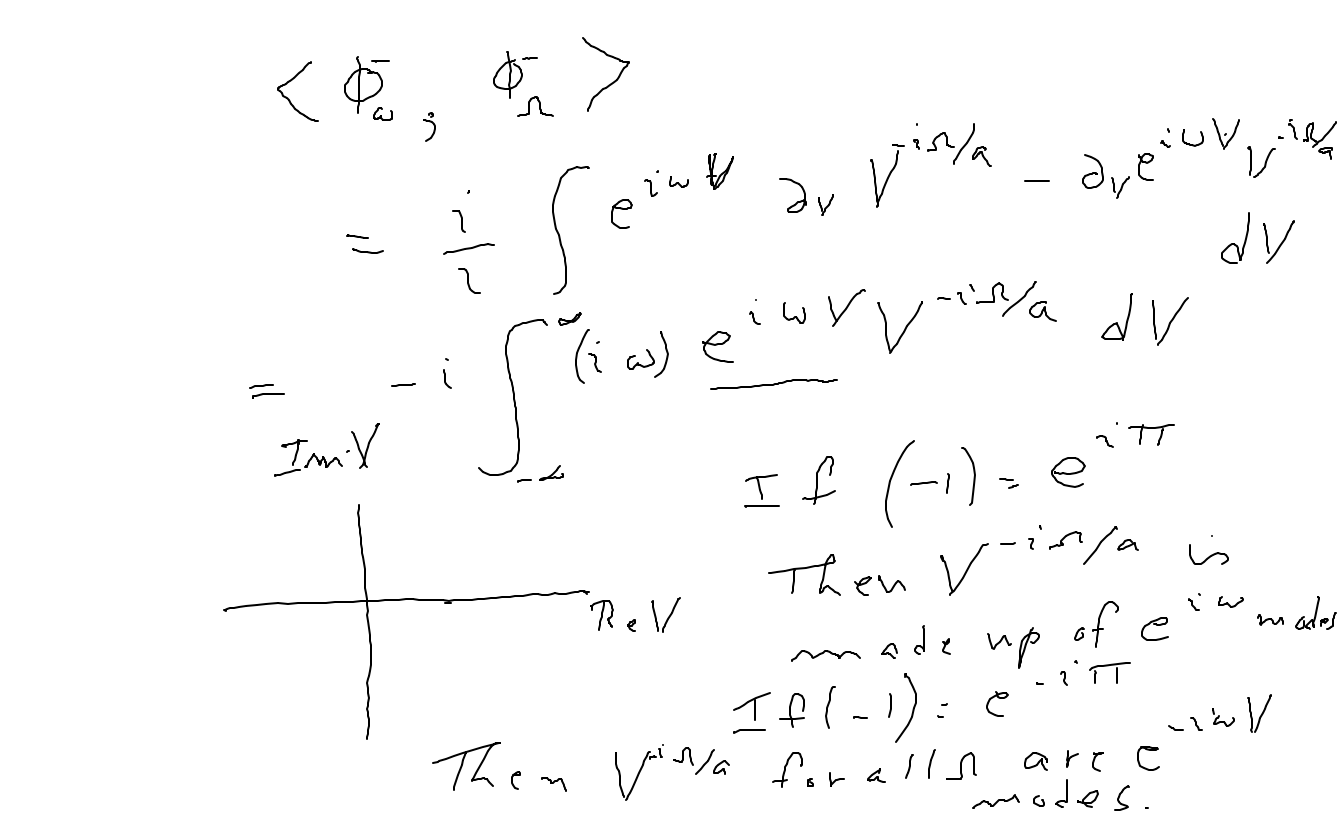 < Φ⁻_ω ; Φ⁻_Ω >
= i/2 ∫ e^{iωV} ∂_V V^{-iΩ/a} − ∂_V e^{iωV} V^{-iΩ/a} dV
= −i ∫_{-∞}^{∞} (iω) e^{iωV} V^{-iΩ/a} dV
Im V
Re V
If (−1) = e^{iπ}
Then V^{-iΩ/a} is
made up of e^{iω} modes
If (−1) = e^{-iπ}
Then V^{iΩ/a} for all Ω are e^{-iωV}
modes.